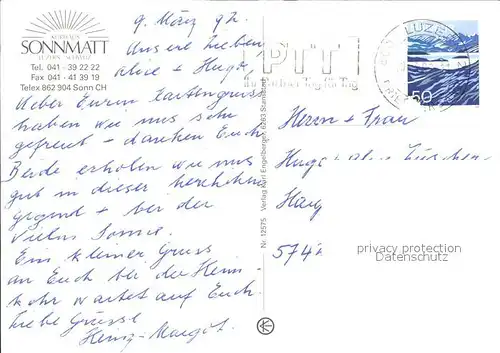 KURHAUS
SONNMATT
LUZERN · SCHWEIZ
Tel. 041 - 39 22 22
Fax 041 - 41 39 19
Telex 862 904 Sonn CH
9. März 92.
Unsere Lieben
Alice + Hugo,
Ueber Euren Kartengruss
haben wir uns sehr
gefreut + danken Euch
Beide erholen wir uns
gut in dieser herrlichen
Gegend + bei der
vielen Sonne.
Ein kleiner Gruss
an Euch bei der Heim-
kehr wartet auf Euch
Liebe Grüsse
Heinz - Margot
Nr. 12575 Verlag Karl Engelberger, 6363 Stansstad
PTT
LUZERN
50
Herrn + Frau
Hugo
5742
privacy protection
Datenschutz